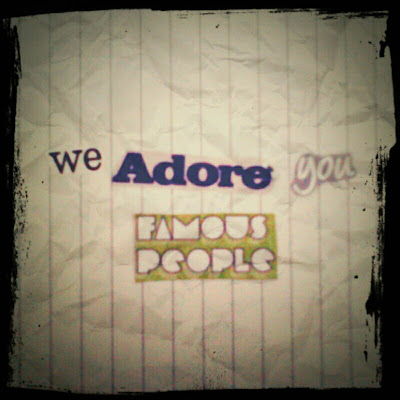 we Adore you
FAMOUS
PEOPLE